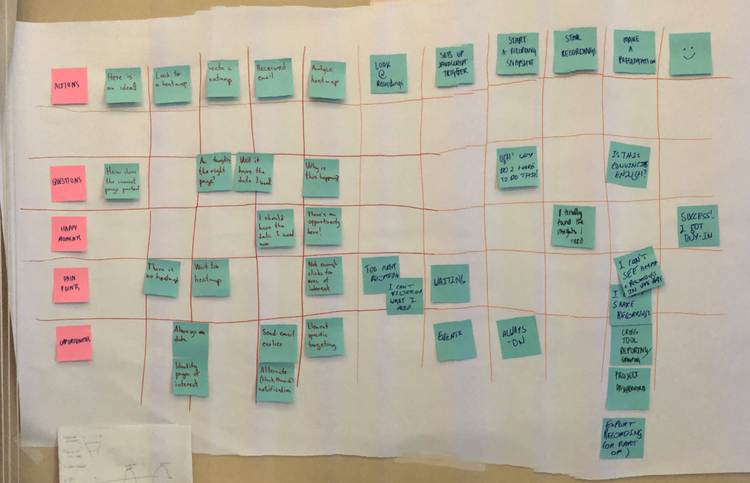 ACTIONS
Here is
an idea!
Look for
a heatmap
create a
heatmap
Received
email
Analyse
heatmap
LOOK
@
RECORDINGS
SETS UP
JAVASCRIPT
TRIGGER
START
A RECORDING
SNAPSHOT
STAR
RECORDINGS
MAKE
A
PRESENTATION
QUESTIONS
How does
the current
page perform?
Am I
the right
page?
Will it
have the
data I need
Why is
this happening?
UGH! WHY
DO I HAVE
TO DO THIS!
IS THIS
CONVINCING
ENOUGH?
HAPPY
MOMENTS
I should
have the
data I need
now
There's an
opportunity
here!
I finally
found the
insights I
need
SUCCESS!
I GOT
BUY-IN
PAIN
POINTS
There is
no heatmap
Wait for
heatmap
Not enough
clicks for
area of
interest
TOO MANY
I CAN'T
FILTER ON
WHAT I
NEED
WAITING
I CAN'T
SEE
IN ONE
SHARE
RECORDINGS
OPPORTUNITIES
Always on
data
Identity
pages of
interest
Send email
earlier
Alternate
notification
Element
specific
targeting
EVENTS
ALWAYS
-ON
CROSS
TOOL
REPORTING
PROJECT
DASHBOARD
EXPORT
RECORDING
(OR PART
OF)